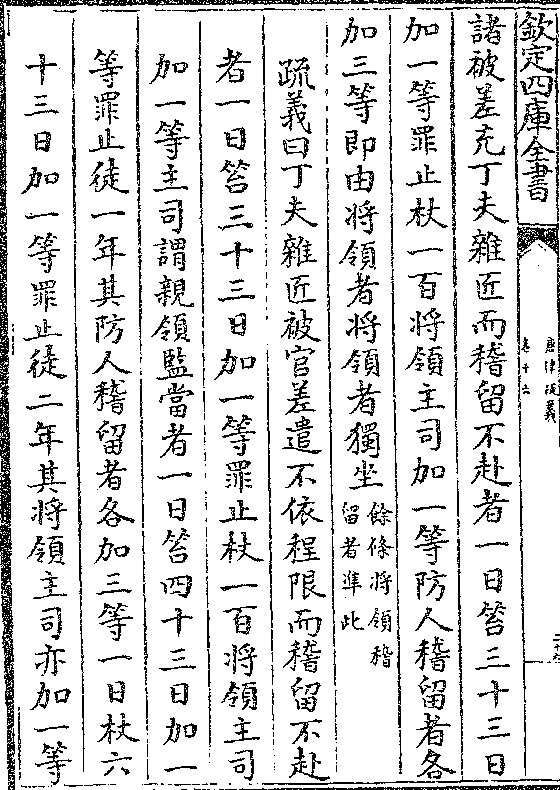 欽定四庫全書
唐律疏義
卷十六
諸被差充丁夫雜匠而稽留不赴者一日笞三十三日
加一等罪止杖一百將領主司加一等防人稽留者各
加三等即由將領者將領者獨坐餘條將領稽留者準此
疏義曰丁夫雜匠被官差遣不依程限而稽留不赴
者一日笞三十三日加一等罪止杖一百將領主司
加一等主司謂親領監當者一日笞四十三日加一
等罪止徒一年其防人稽留者各加三等一日杖六
十三日加一等罪止徒二年其將領主司亦加一等